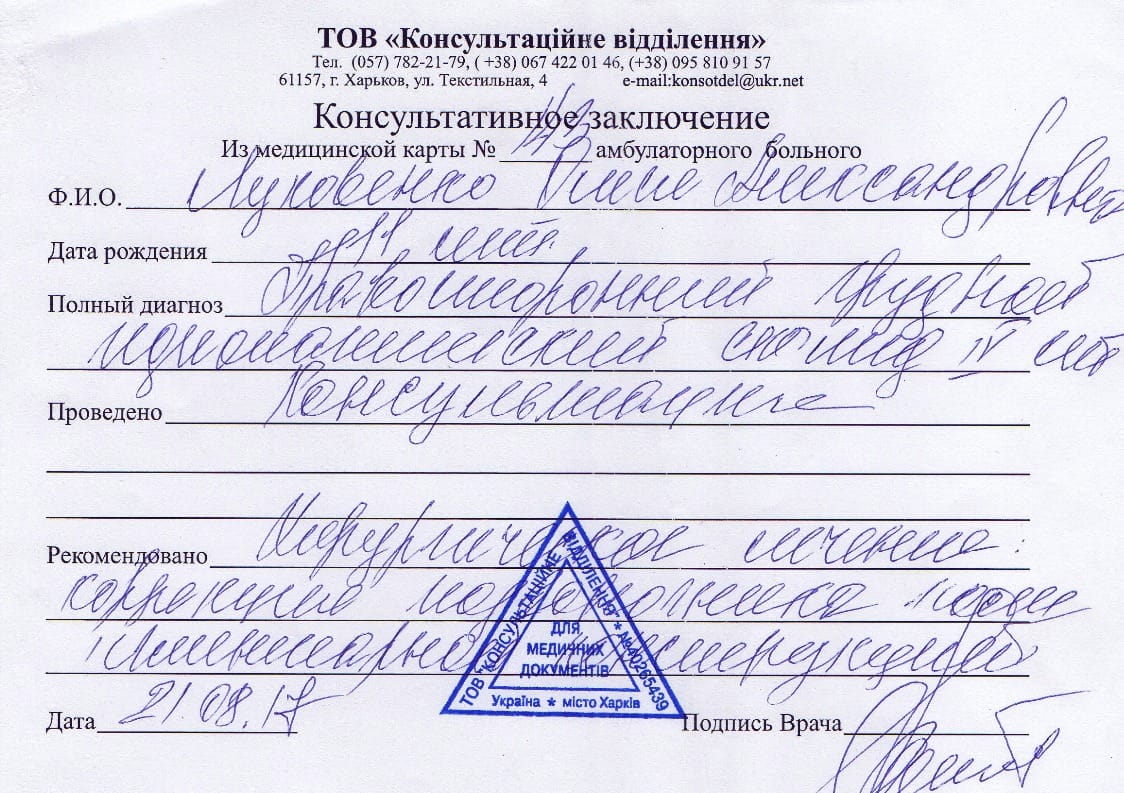 ТОВ «Консультаційне відділення»
Тел. (057) 782-21-79, ( +38) 067 422 01 46, (+38) 095 810 91 57
61157, г. Харьков, ул. Текстильная, 4 e-mail:konsotdel@ukr.net
Консультативное заключение
Из медицинской карты № амбулаторного больного
Ф.И.О. Александровна
Дата рождения 11 лет.
Полный диагноз Правосторонний грудной
идиопатический сколиоз IV ст
Проведено Консультация
Рекомендовано Хирургическое лечение:
коррекция позвоночника
конструкцией
ТОВ "КОНСУЛЬТАЦІЙНЕ ВІДДІЛЕННЯ" * №40265439
ДЛЯ
МЕДИЧНИХ
ДОКУМЕНТІВ
Україна * місто Харків
Дата 21.08.17 Подпись Врача